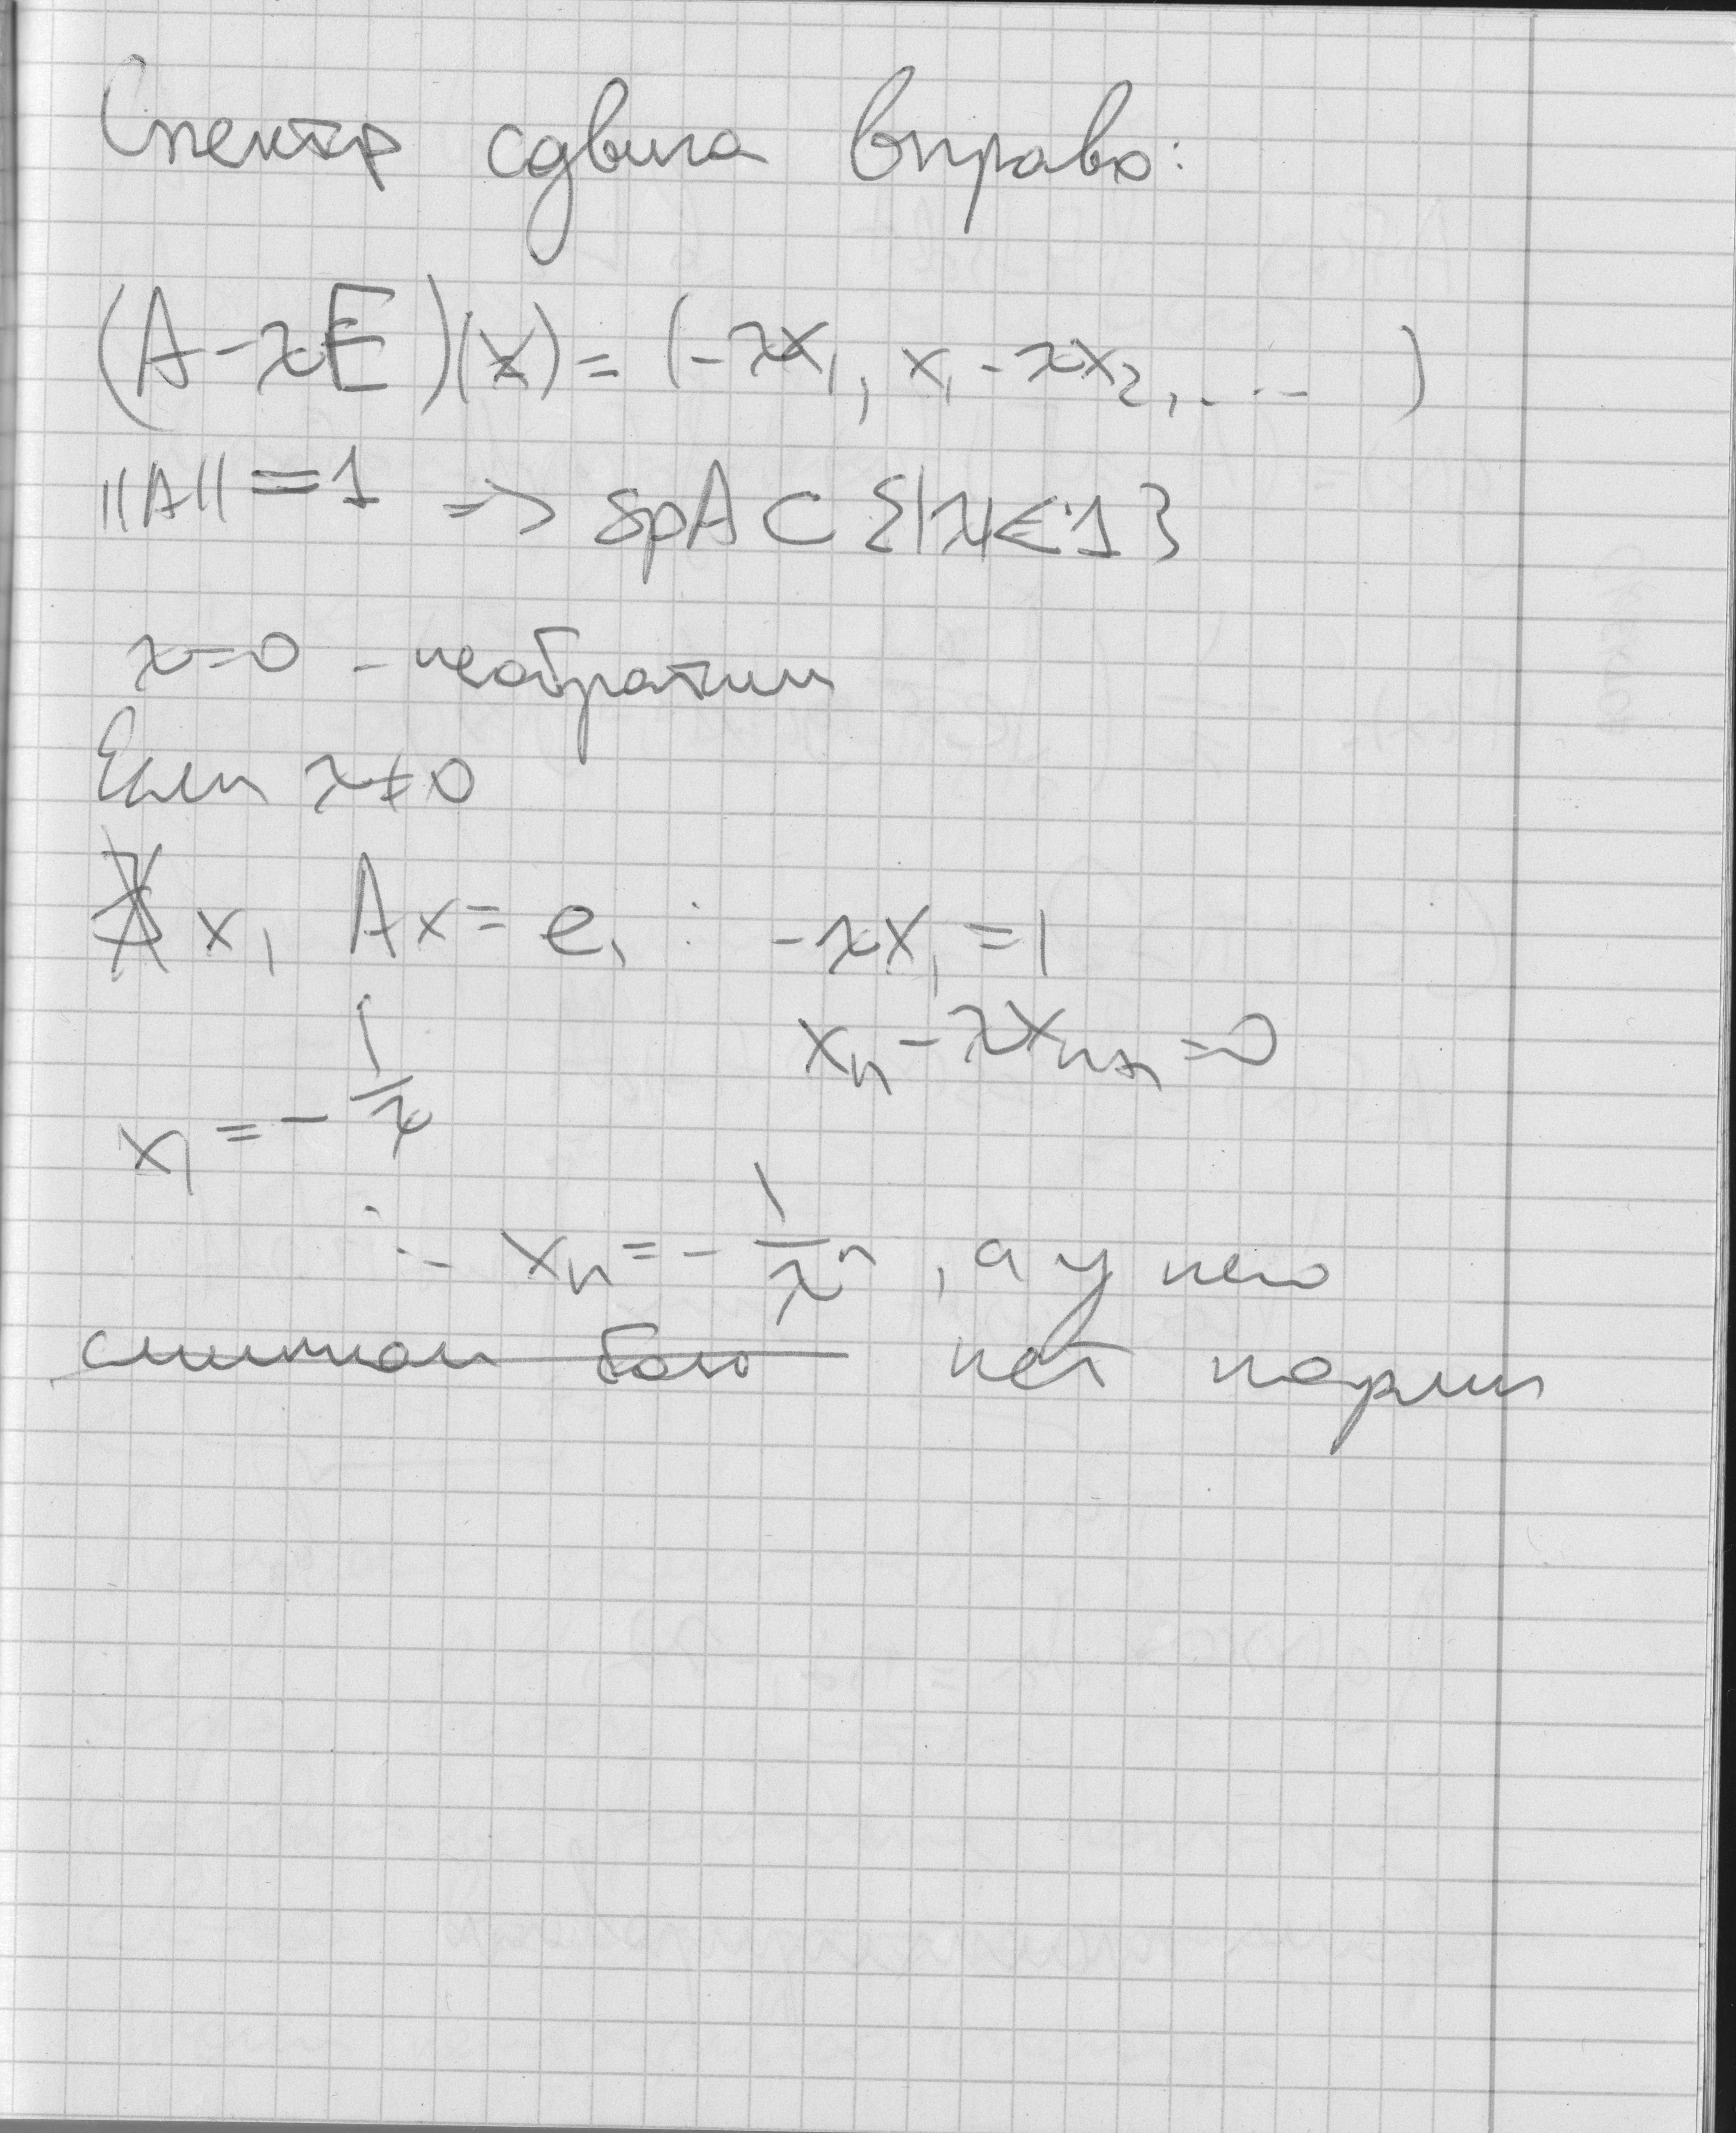 Спектр сдвига вправо:
(A - λE)(x) = (-λx₁, x₁ - λx₂, ... )
||A|| = 1 => spA ⊂ {|λ| ≤ 1}
λ=0 - необратим
Если λ≠0
∄ x, Ax = e₁ : -λx₁ = 1
xₙ - λxₙ₊₁ = 0
x₁ = - 1/λ
... xₙ = - 1/λⁿ, а у него
слишком бол нет нормы